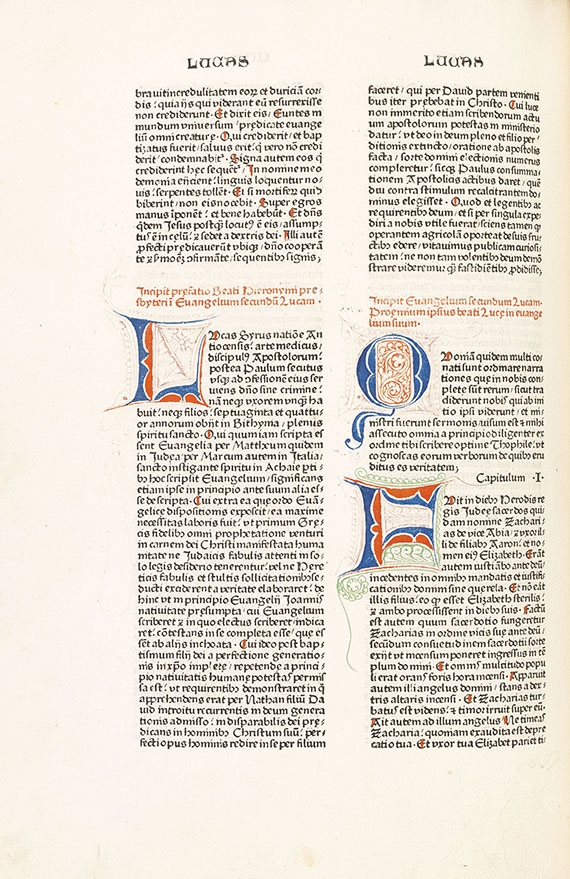 LUCAS
bravit incredulitatem eoꝝ et duriciam cor⸗
dis: quia ijs qui viderant eū resurrexisse
non crediderunt. Et dixit eis: Euntes in
mundum universum: predicate evange
lium omni creaturę. Qui crediderit et bap
tizatus fuerit: salvus erit. q̄ vero nō credi
derit condemnabit᷑. Signa autem eos q̄
crediderint hęc sequēt᷑: In nomine meo
demonia eijcient. linguis loquentur no⸗
vis: serpentes tollēt. Et si mortiferū quid
biberint: non eis nocebit. Super egros
manus iponēt: et bene habebūt. Et dn̄s
qdem Jesus postqͣ locutꝰ ē eis: assump⸗
tus ē in cęlū: et sedet a dextris dei. Illi autē
pfecti predicaverūt vbiqꝫ: dn̄o cooperā
te et smonē cōfirmāte: sequentibꝰ signis:
Incipit prefatio Beati Hieronymi pre⸗
sbyteri ī Evangelium secundū Lucam.
LUcas Syrus natiōe An
tiocensis: arte medicus:
discipulꝰ Apostolorum:
postea Paulum secutus
vsqꝫ ad cōfessionē eius ser
viens dn̄o sine crimine.
nā neqꝫ vxorem vnqͣ ha
buit: neqꝫ filios: septuaginta et quattu⸗
or annorum obijt in Bithyma: plenus
spiritu sancto. Qui quum iam scripta es
sent Evangelia: per Mattheum quidem
in Judęa: per Marcum autem in Italia:
sancto instigante spiritu in Achaie pti⸗
bꝰ hoc scripsit Evangelium: significans
etiam ipse in principio ante suum alia es⸗
se descripta. Cui extra ea que ordo Euā⸗
gelicę dispositiōs exposcit: ea maxime
necessitas laboris fuit: vt primum Grę⸗
cis fidelibꝰ omni prophetatione venturi
in carnem dei Christi manifestata huma
nitate: ne Judaicis fabulis attenti in so⸗
lo legis desiderio tenerentur: vel ne Here
ticis fabulis et stultis sollicitationibꝰ se⸗
ducti exciderent a veritate elaboraret. de
hinc vt in principio Evangelij Joannis
nativitate presumpta: cui Evangelium
scriberet et in quo electus scriberet: indica
ret: cōtestans in se completa esse: que es
sēt ab alijs inchoata. Cui deo post bap⸗
tismum filij dei a perfectione generatio⸗
nis in xp̄o implete: repetende a princi⸗
pio nativitatis humanę potestas permis
sa est: vt requirentibꝰ demonstraret in q̄
apprehendens erat per Nathan filiū Da
vid introitu recurrentis in deum genera
tionis admisso: indisparabilis dei prę⸗
dicans in hominibꝰ Christum suū: per⸗
fecti opus hominis redire in se per filium
LUCAS
faceret: qui per David partem venienti
bus iter prębebat in Christo. Cui lucę
non immerito etiam scribendorum actuū
apostolorum potestas in ministerio
datur: vt deo in deum pleno et filio per⸗
ditionis extincto: oratione ab apostolis
facta: sorte domini electionis numerus
compleretur: sicqꝫ Paulus consumma⸗
tionem Apostolicis actibus daret: quē
diu contra stimulum recalcitrantem do⸗
minus elegisset. Quod et legentibꝰ ac
requirentibꝰ deum: et si per singula expe⸗
diri a nobis vtile fuerat: sciens tamen qͥ
operantem agricolā oporteat de suis fru⸗
ctibꝰ edere: vitavimus publicam curiosi⸗
tatem: ne non tam volentibꝰ deum demō
strare videremur: qͣ fastidiētibꝰ pdidisse:
Incipit Evangelium secundum Lucam.
Proęmium ipsius beati Lucę in evange
lium suum.
QUoniā quidem multi co⸗
nati sunt ordinare narra
tiones que in nobis com⸗
pletę sūt rerum: sicut tra
diderunt nobis: qui ab ini
tio ipsi viderunt: et mi⸗
nistri fuerunt sermonis: visum est et mihi
assecuto omnia a principio diligenter ex
ordine tibi scribere optime Theophile: vt
cognoscas eorum verborum de quibꝰ eru
ditus es veritatem:
Capitulum .I.
FUit in diebꝰ Herodis re
gis Judeę sacerdos qui⸗
dam nomine Zachari⸗
as de vice Abia: et vxor il⸗
li de filiabꝰ Aaron: et no⸗
men eiꝰ Elizabeth. Erāt
autem iusti ambo ante deū:
incedentes in omnibꝰ mandatis et iustifi⸗
cationibꝰ domini sine querela. Et nō eāt
illis filius: eo qͥ esset Elizabeth sterilis:
et ambo processissent in diebꝰ suis. Factū
est autem quum sacerdotio fungeretur
Zacharias in ordine vicis suę ante deū:
secūdum consuetudinem sacerdotij sorte
exijt vt incensum poneret ingressus in tē
plum domini. Et omnis multitudo popu
li erat orans foris hora incensi. Apparuit
autem illi angelus domini: stans a dex⸗
tris altaris incensi. Et Zacharias tur⸗
batus est videns: et timor irruit super eū.
Ait autem ad illum angelus: Ne timeas
Zacharia: quoniam exaudita est depre
catio tua. Et vxor tua Elizabet pariet ti⸗